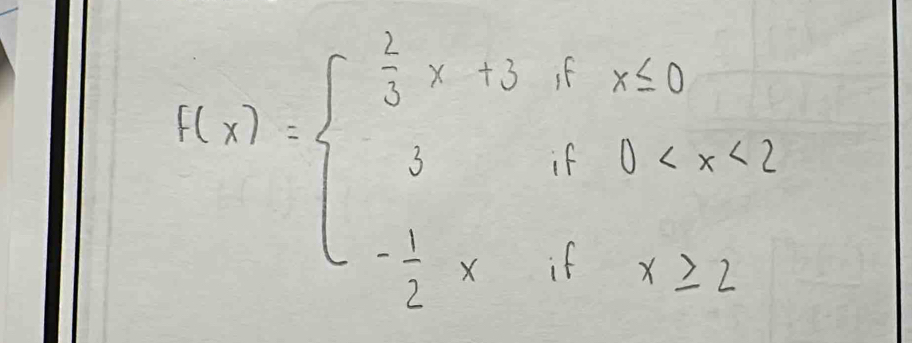 f(x) = { 2/3 x + 3 if x ≤ 0
3 if 0 < x < 2
- 1/2 x if x ≥ 2